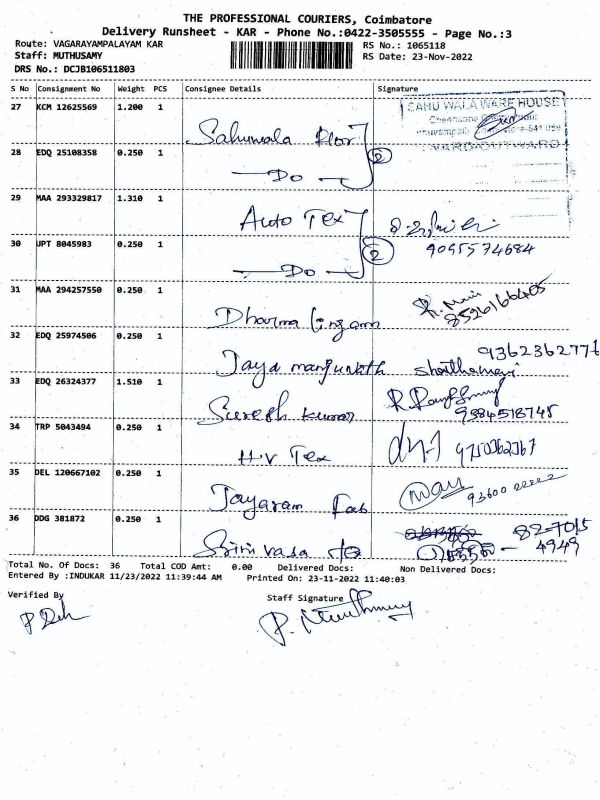 THE PROFESSIONAL COURIERS, Coimbatore
Delivery Runsheet - KAR - Phone No.:0422-3505555 - Page No.:3
Route: VAGARAYAMPALAYAM KAR
RS No.: 1065118
Staff: MUTHUSAMY
RS Date: 23-Nov-2022
DRS No.: DCJB106511803
S No Consignment No Weight PCS Consignee Details Signature
27 KCM 12625569 1.200 1
SAHU WALA WARE HOUSE
Sahuwala Flor
28 EDQ 25108358 0.250 1
2
Do
29 MAA 293329817 1.310 1
Auto Tex
30 UPT 8045983 0.250 1
9095574684
2
Do
31 MAA 294257550 0.250 1
Dharma lingam
8526166405
32 EDQ 25974506 0.250 1
Jaya manjunath
9362362776
33 EDQ 26324377 1.510 1
Suresh kumar
9384518745
34 TRP 5043494 0.250 1
H.V Tex
35 DEL 120667102 0.250 1
Jayaram Fab
93600 22222
36 DDG 381872 0.250 1
Srinivasa Tex
82-7015
4949
Total No. Of Docs: 36 Total COD Amt: 0.00 Delivered Docs: Non Delivered Docs:
Entered By :INDUKAR 11/23/2022 11:39:44 AM Printed On: 23-11-2022 11:40:03
Verified By
Staff Signature